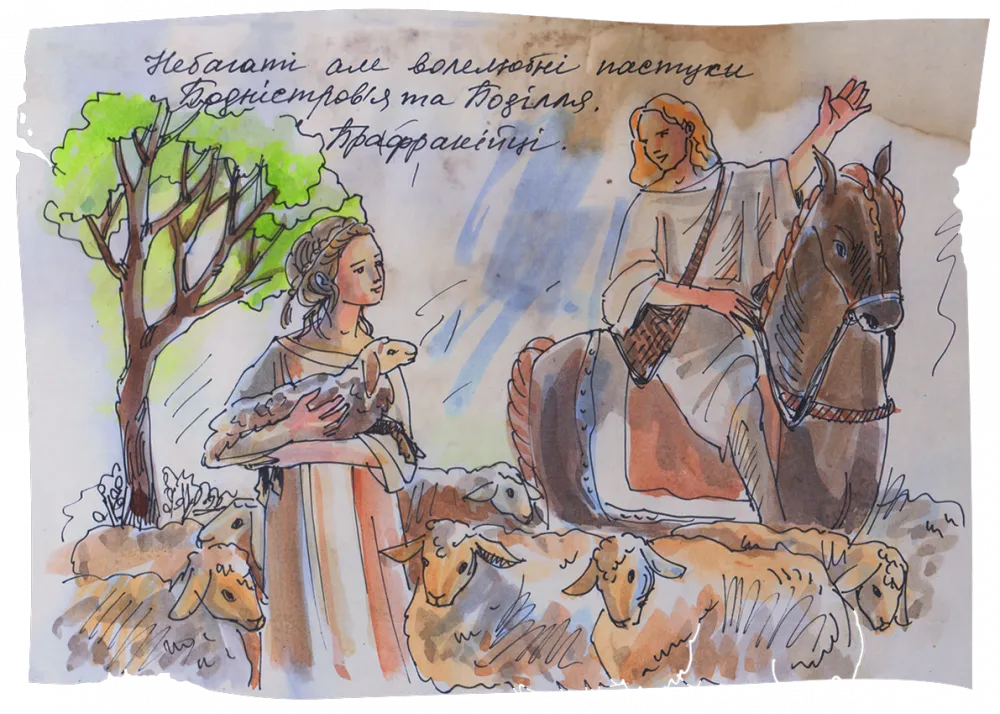 Небагаті але волелюбні пастухи
Подністров'я та Поділля.
Прафракійці.